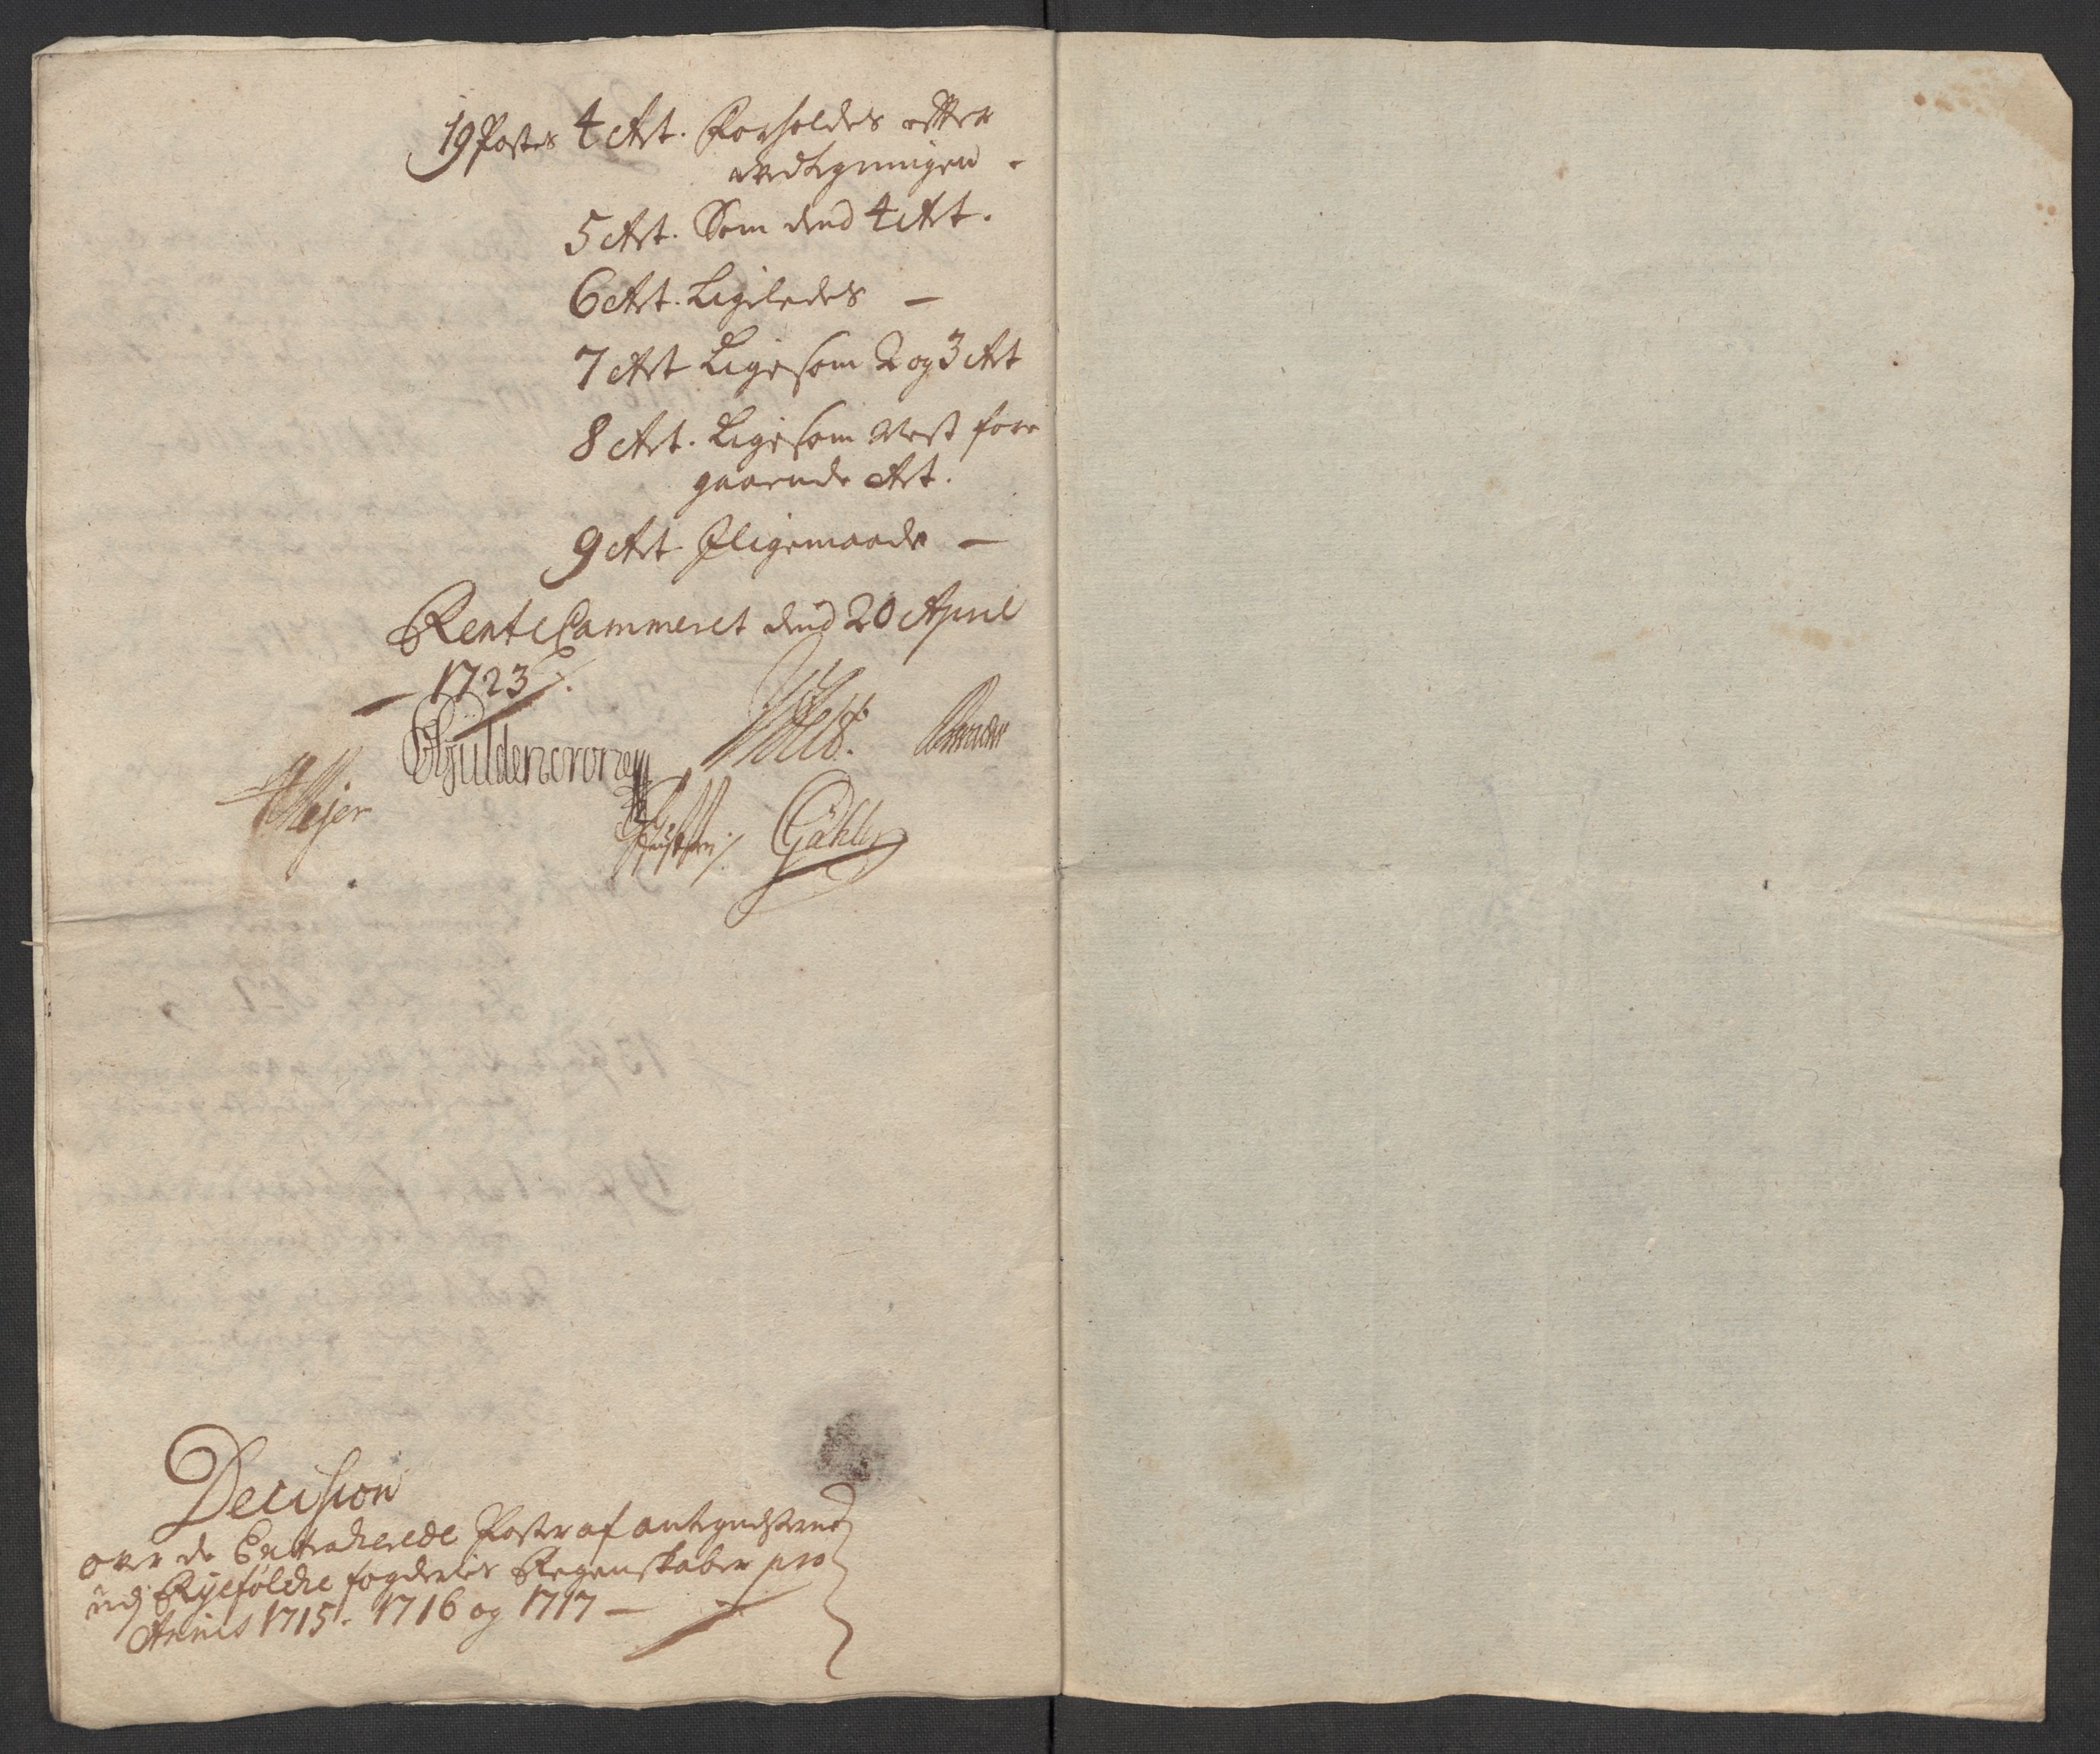 19 Postes 4 Art. Forholdes efter
andtegningen.
5 Art. Som dend 4 Art.
6 Art. Ligeledes —
7 Art Ligesom 2 og 3 Art
8 Art. Ligesom Nest fore
gaaende Art.
9 Art. Jligemaade —
Rente Cammeret dend 20 April
1723
Güldencrone
Meyer
Gähler
Decision
over de Extraherede Poster af antegnelserne
udj Ryefölche fogderies Regenskaber pro
Annis 1715. 1716 og 1717 —